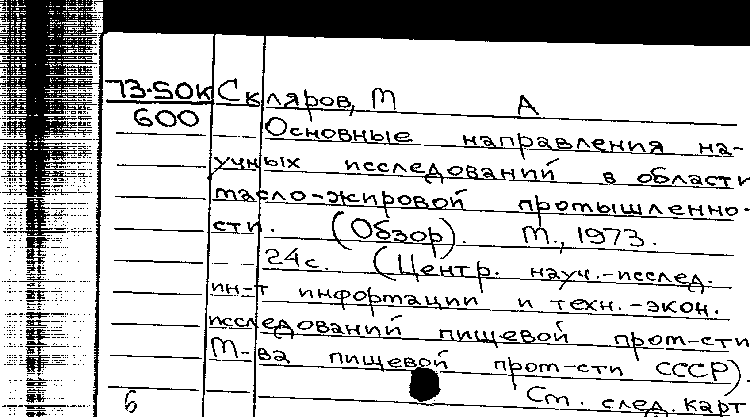 73-50К Скляров, М А
600 Основные направления на-
учных исследований в области
масло-жировой промышленно-
сти. (Обзор). М., 1973.
24с. (Центр. науч.-исслед.
ин-т информации и техн.-экон.
исследований пищевой пром-сти
М-ва пищевой пром-сти СССР).
См. след. карт
6